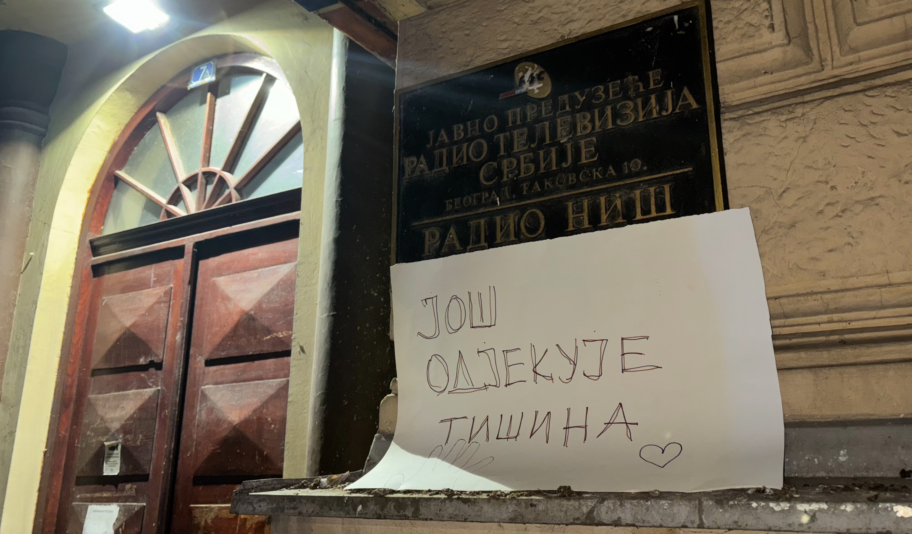 7A
ЈАВНО ПРЕДУЗЕЋЕ
РАДИО ТЕЛЕВИЗИЈА
СРБИЈЕ
БЕОГРАД, ТАКОВСКА 10.
РАДИО НИШ
ЈОШ
ОДЈЕКУЈЕ
ТИШИНА